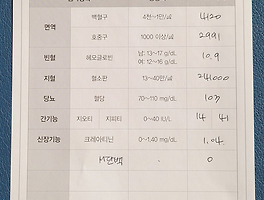 면역 백혈구 4천~1만/㎕ 4120
호중구 1000 이상/㎕ 2991
빈혈 헤모글로빈 남: 13~17 g/dL 10.9
여: 12~16 g/dL
지혈 혈소판 13~40만/㎕ 241000
당뇨 혈당 70~110 mg/dL 103
간기능 지오티 지피티 0~40 IU/L 14 41
신장기능 크레아티닌 0~1.40 mg/dL 1.04
뇨단백 0